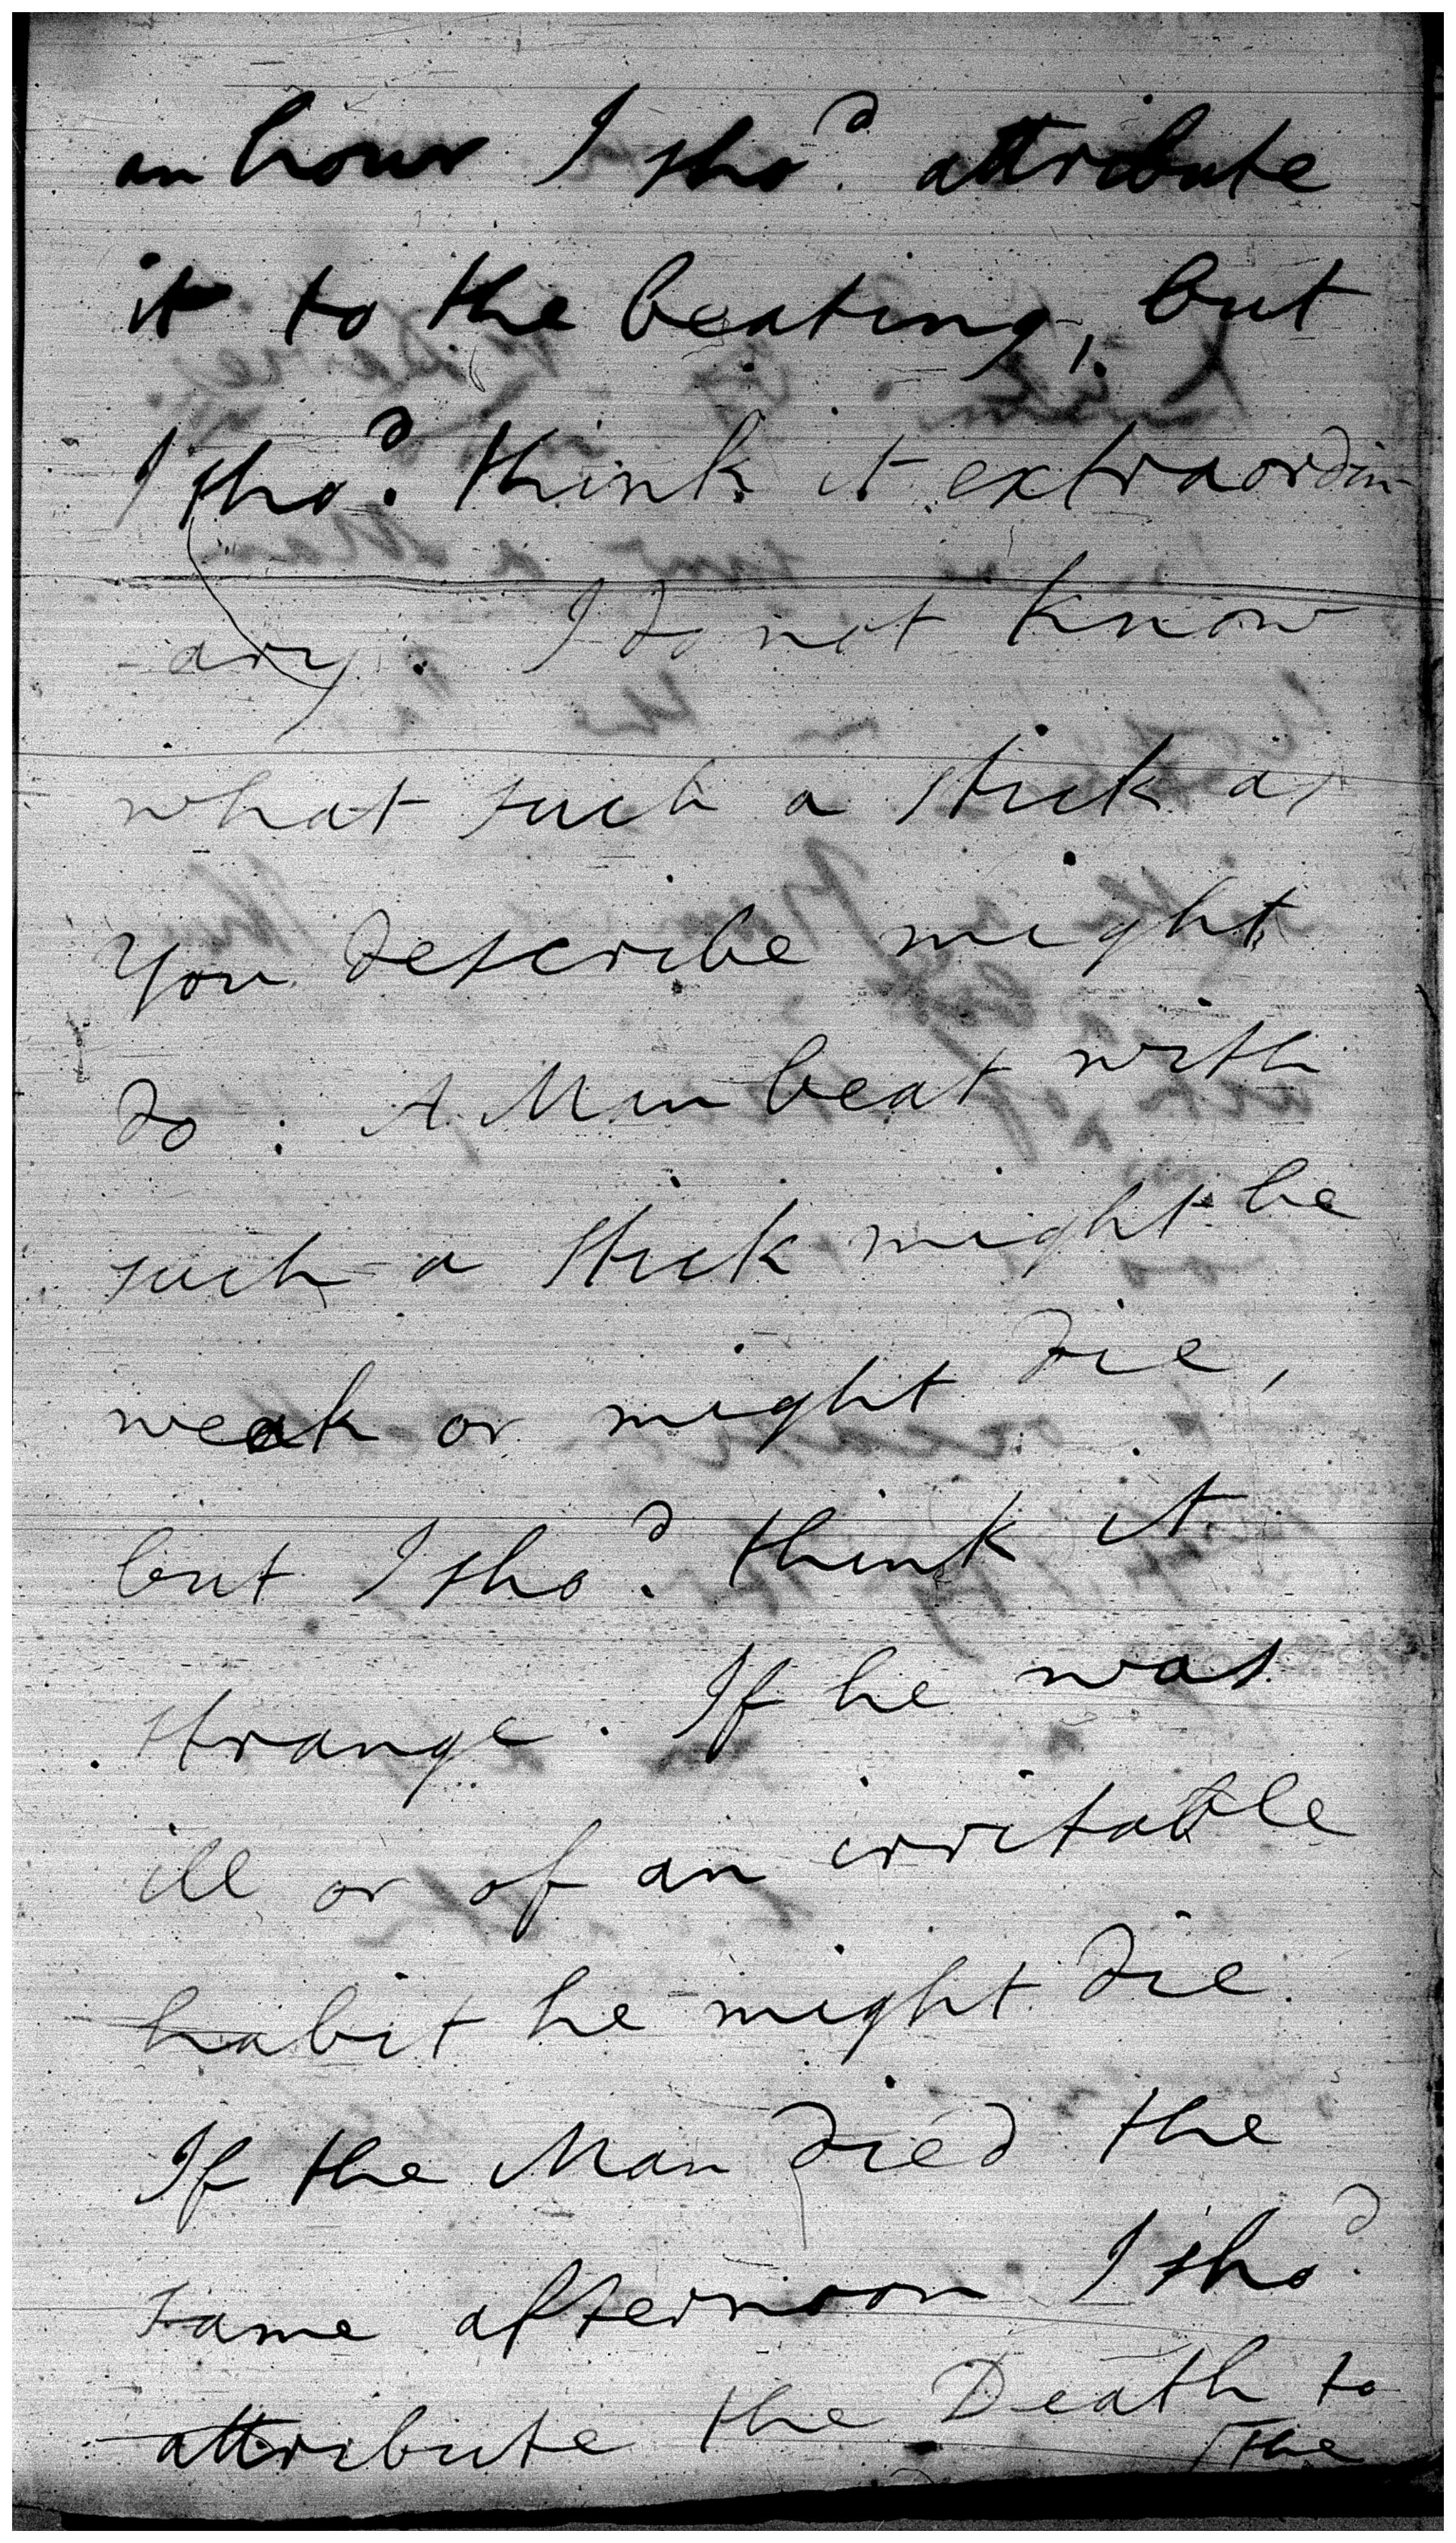 an hour I sho.^d attribute
it to the beating, but
I sho.^d think it extraordin-
-ary. I do not know
what such a stick as
you describe might
do: A Man beat with
such a stick might be
weak or might die,
but I sho.^d think it
strange. If he was
ill or of an irritable
habit he might die.
If the Man died the
same afternoon I sho.^d
attribute the Death to
the